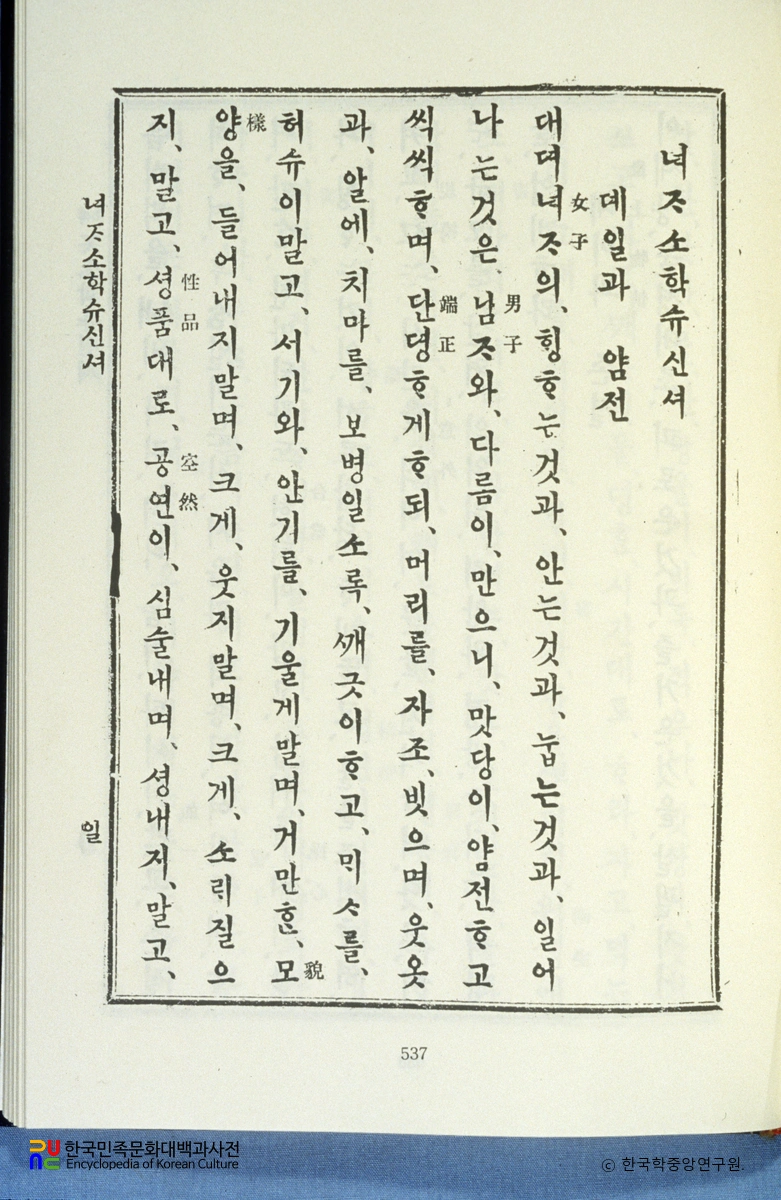 녀ᄌᆞ소학슈신셔
뎨일과 얌전
女子
대뎌녀ᄌᆞ의、ᄒᆡᆼᄒᆞ는것과、안는것과、눕는것과、일어
男子
나는것은 남ᄌᆞ와、다름이、만으니、맛당이、얌전ᄒᆞ고
端正
씩씩ᄒᆞ며、단뎡ᄒᆞ게ᄒᆞ되、머리를、자조、빗으며、웃옷
과、알에、치마를、보병일소록、ᄭᅢ긋이ᄒᆞ고、ᄆᆡᄉᆞ를、
貌
허슈이말고、서기와、안기를、기울게말며、거만ᄒᆞᆫ、모
樣
양을、들어내지말며、크게、웃지말며、크게、소ᄅᆡ질으
性品 空然
지、말고、셩품대로、공연이、심술내며、셩내지、말고、
녀ᄌᆞ소학슈신셔 일
537
한국민족문화대백과사전
Encyclopedia of Korean Culture
ⓒ 한국학중앙연구원.